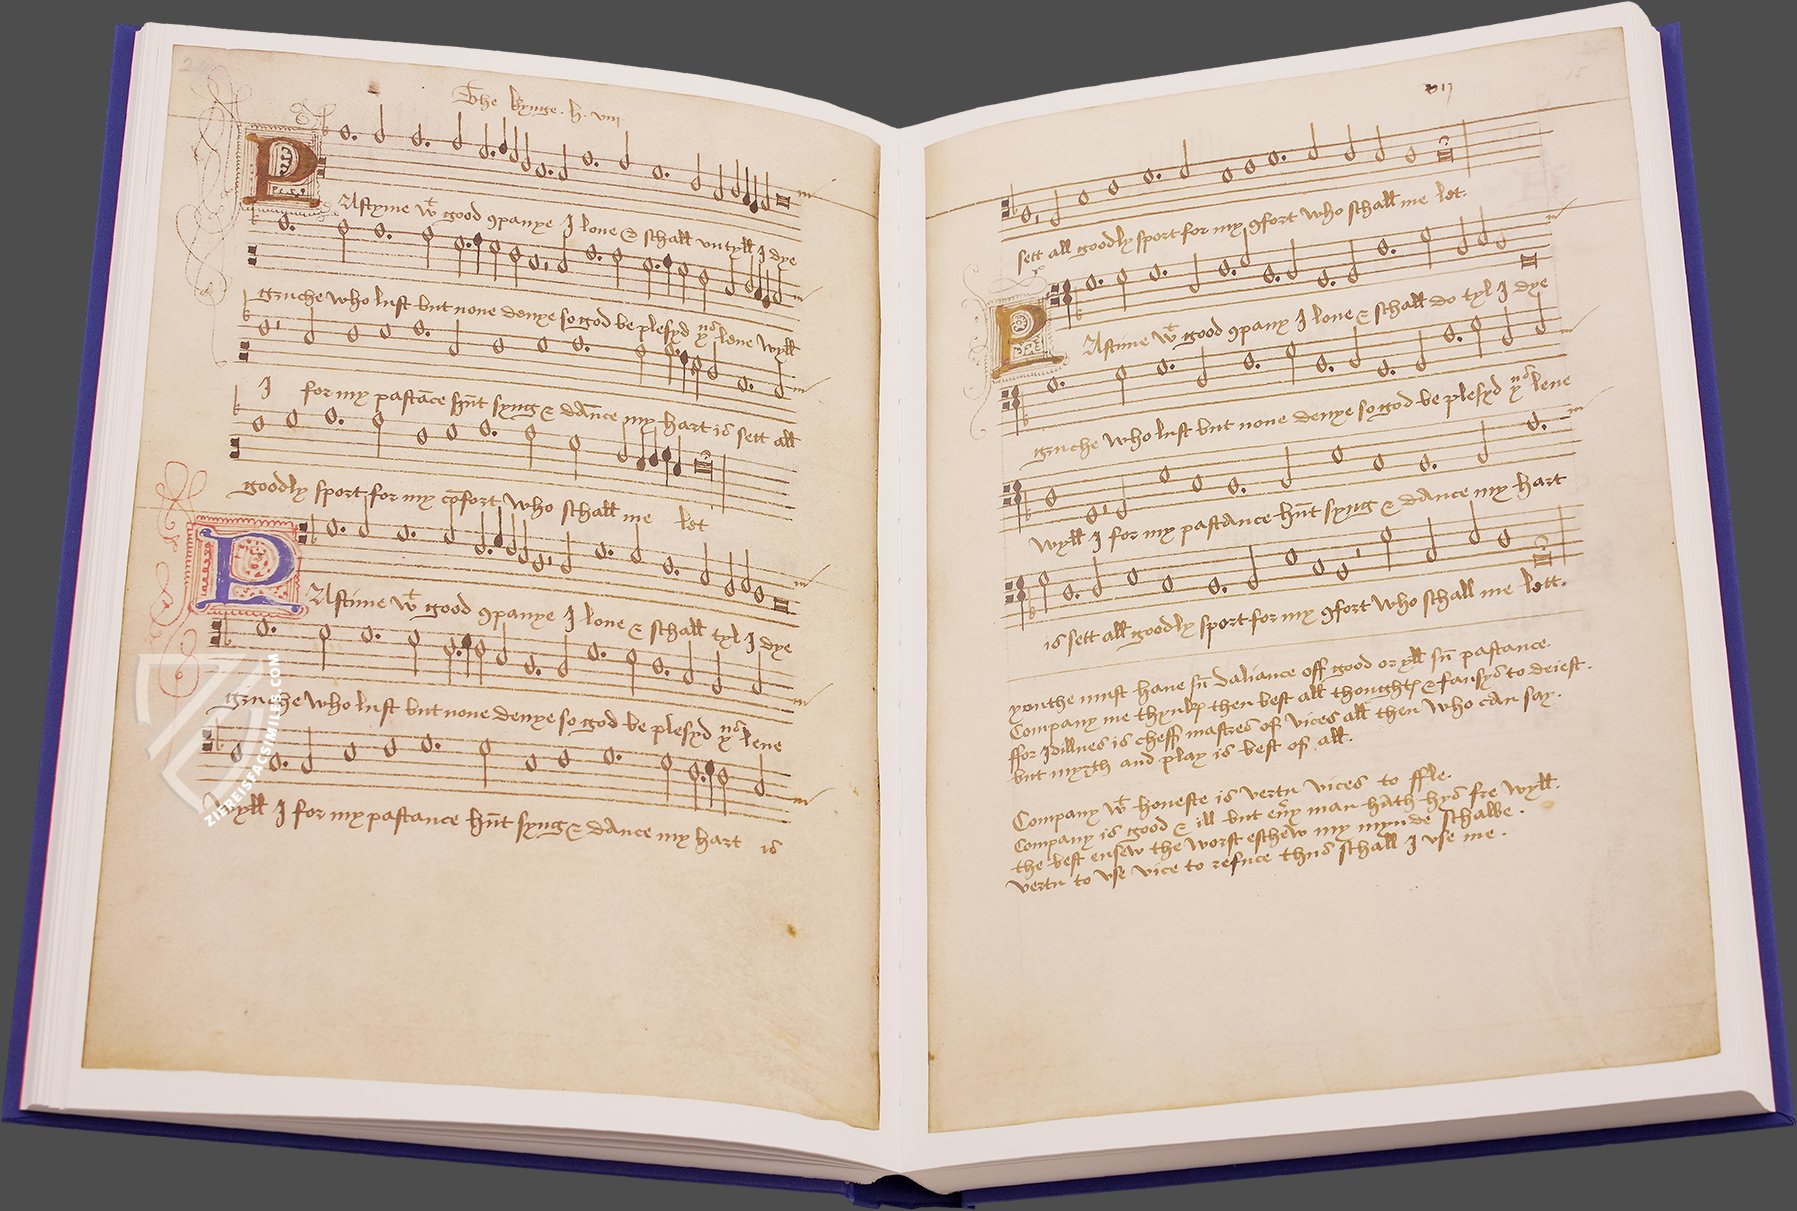 The kynge .h. viii.
PAstyme wt good ꝯpanye I loue & schall vntyll I dye
gruche who lust but none denye so god be plesyd yus leue wyll
I for my pastāce hūt syng & dāuce my hart is sett all
goodly sport for my cōfort who schall me let
PAstime wt good ꝯpanye I loue & schall tyl I dye
gruche who lust but none denye so god be plesyd yus leue
wyll I for my pastance hūt syng & dance my hart is
ZIEREISFACSIMILES.COM
vij
15
sett all goodly sport for my ꝯfort who schall me let.
PAstime wt good ꝯpany I loue & schall do tyl I dye
gruche who lust but none denye so god be plesyd yus leue
wyll I for my pastance hūt syng & dance my hart
is sett all goodly sport for my ꝯfort who schall me lett.
youthe must haue sū daliance off good or yll sū pastance.
Company me thynkp then best all thoughtꝭ & fansys to deiest.
ffor Idillnes is cheff mastres of vices all then who can say.
but myrth and play is best of all.
Company wt honeste is vertu vices to ffle.
Company is good & ill but eūy man hath hys fre wyll.
the best ensew the worst eschew my mynde schalbe.
vertu to vse vice to refuce thus schall I vse me.